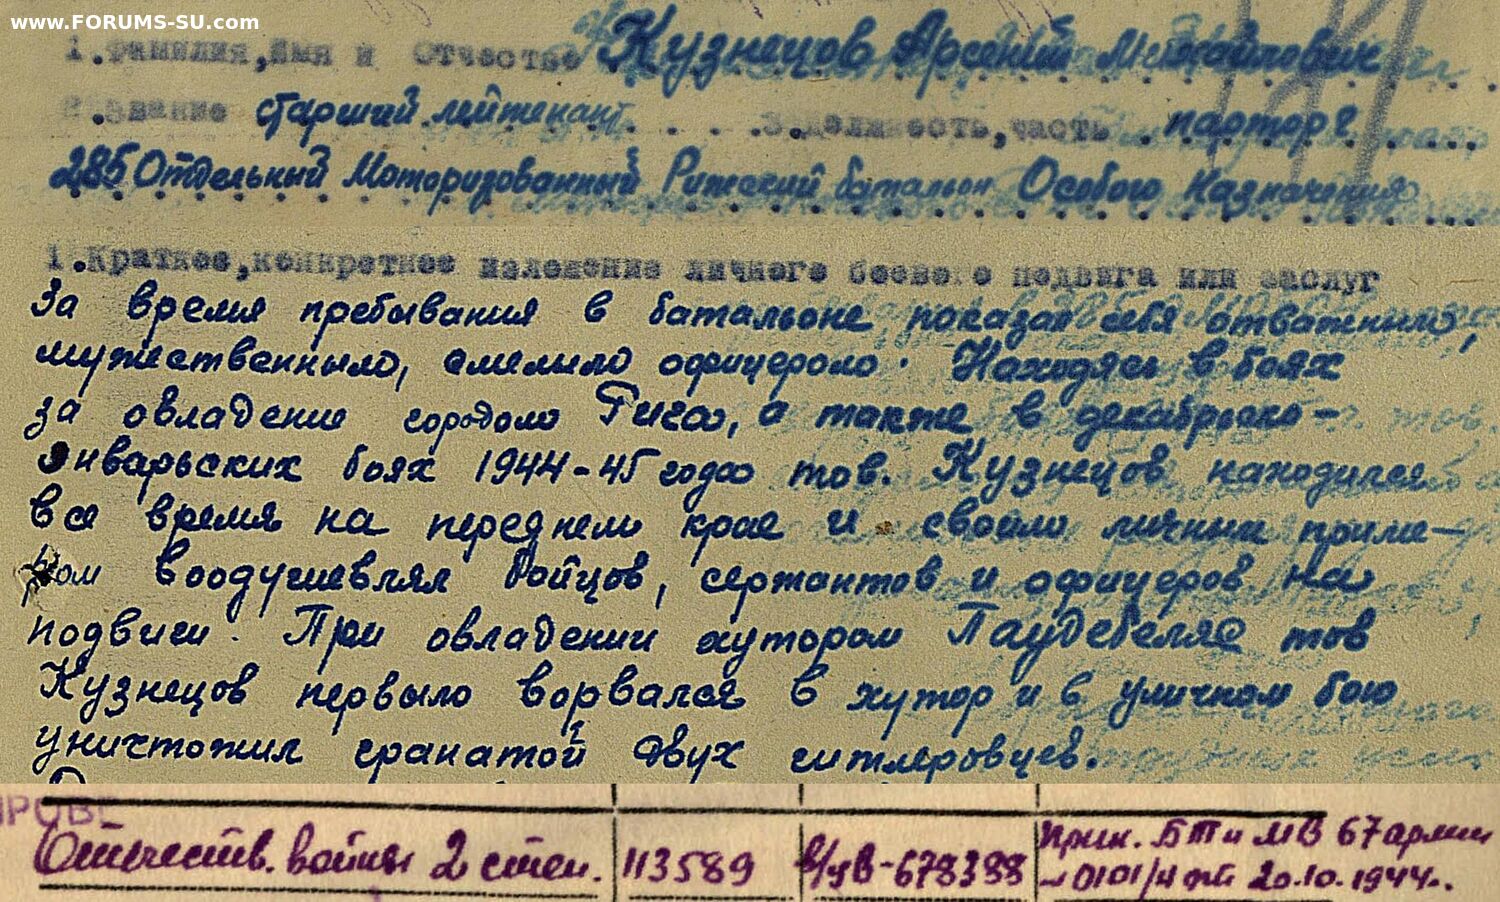 www.FORUMS-SU.com
1. Фамилия, Имя и Отчество Кузнецов Арсений Михайлович
2. Звание старший лейтенант 3. Должность, часть парторг
285 Отдельный Моторизованный Рижский батальон Особого Назначения
1. Краткое, конкретное изложение личного боевого подвига или заслуг
За время пребывания в батальоне показал себя отважным,
мужественным, смелым офицером. Находясь в боях
за овладение городом Рига, а также в декабрьско-
январьских боях 1944-45 года тов. Кузнецов находился
все время на переднем крае и своим личным приме-
ром воодушевлял бойцов, сержантов и офицеров на
подвиги. При овладении хутором Паудебеляс тов
Кузнецов первым ворвался в хутор и в уличном бою
уничтожил гранатой двух гитлеровцев.
Отечеств. войны 2 степ. 113589 в/у В-678388 Прик. БТ и МВ 67 армии
№ 0101/н от 20.10.1944г.